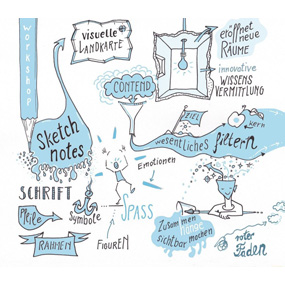 WORKSHOP
visuelle
LANDKARTE
eröffnet
neue
RÄUME
innovative
WISSENS
VERMITTLUNG
CONTENT
Sketch
notes
ZIEL
KERN
wesentliches filtern
Emotionen
SCHRIFT
Pfeile
Symbole
SPASS
RAHMEN
FIGUREN
Zusammen
hänge
sichtbar machen
roter
Faden